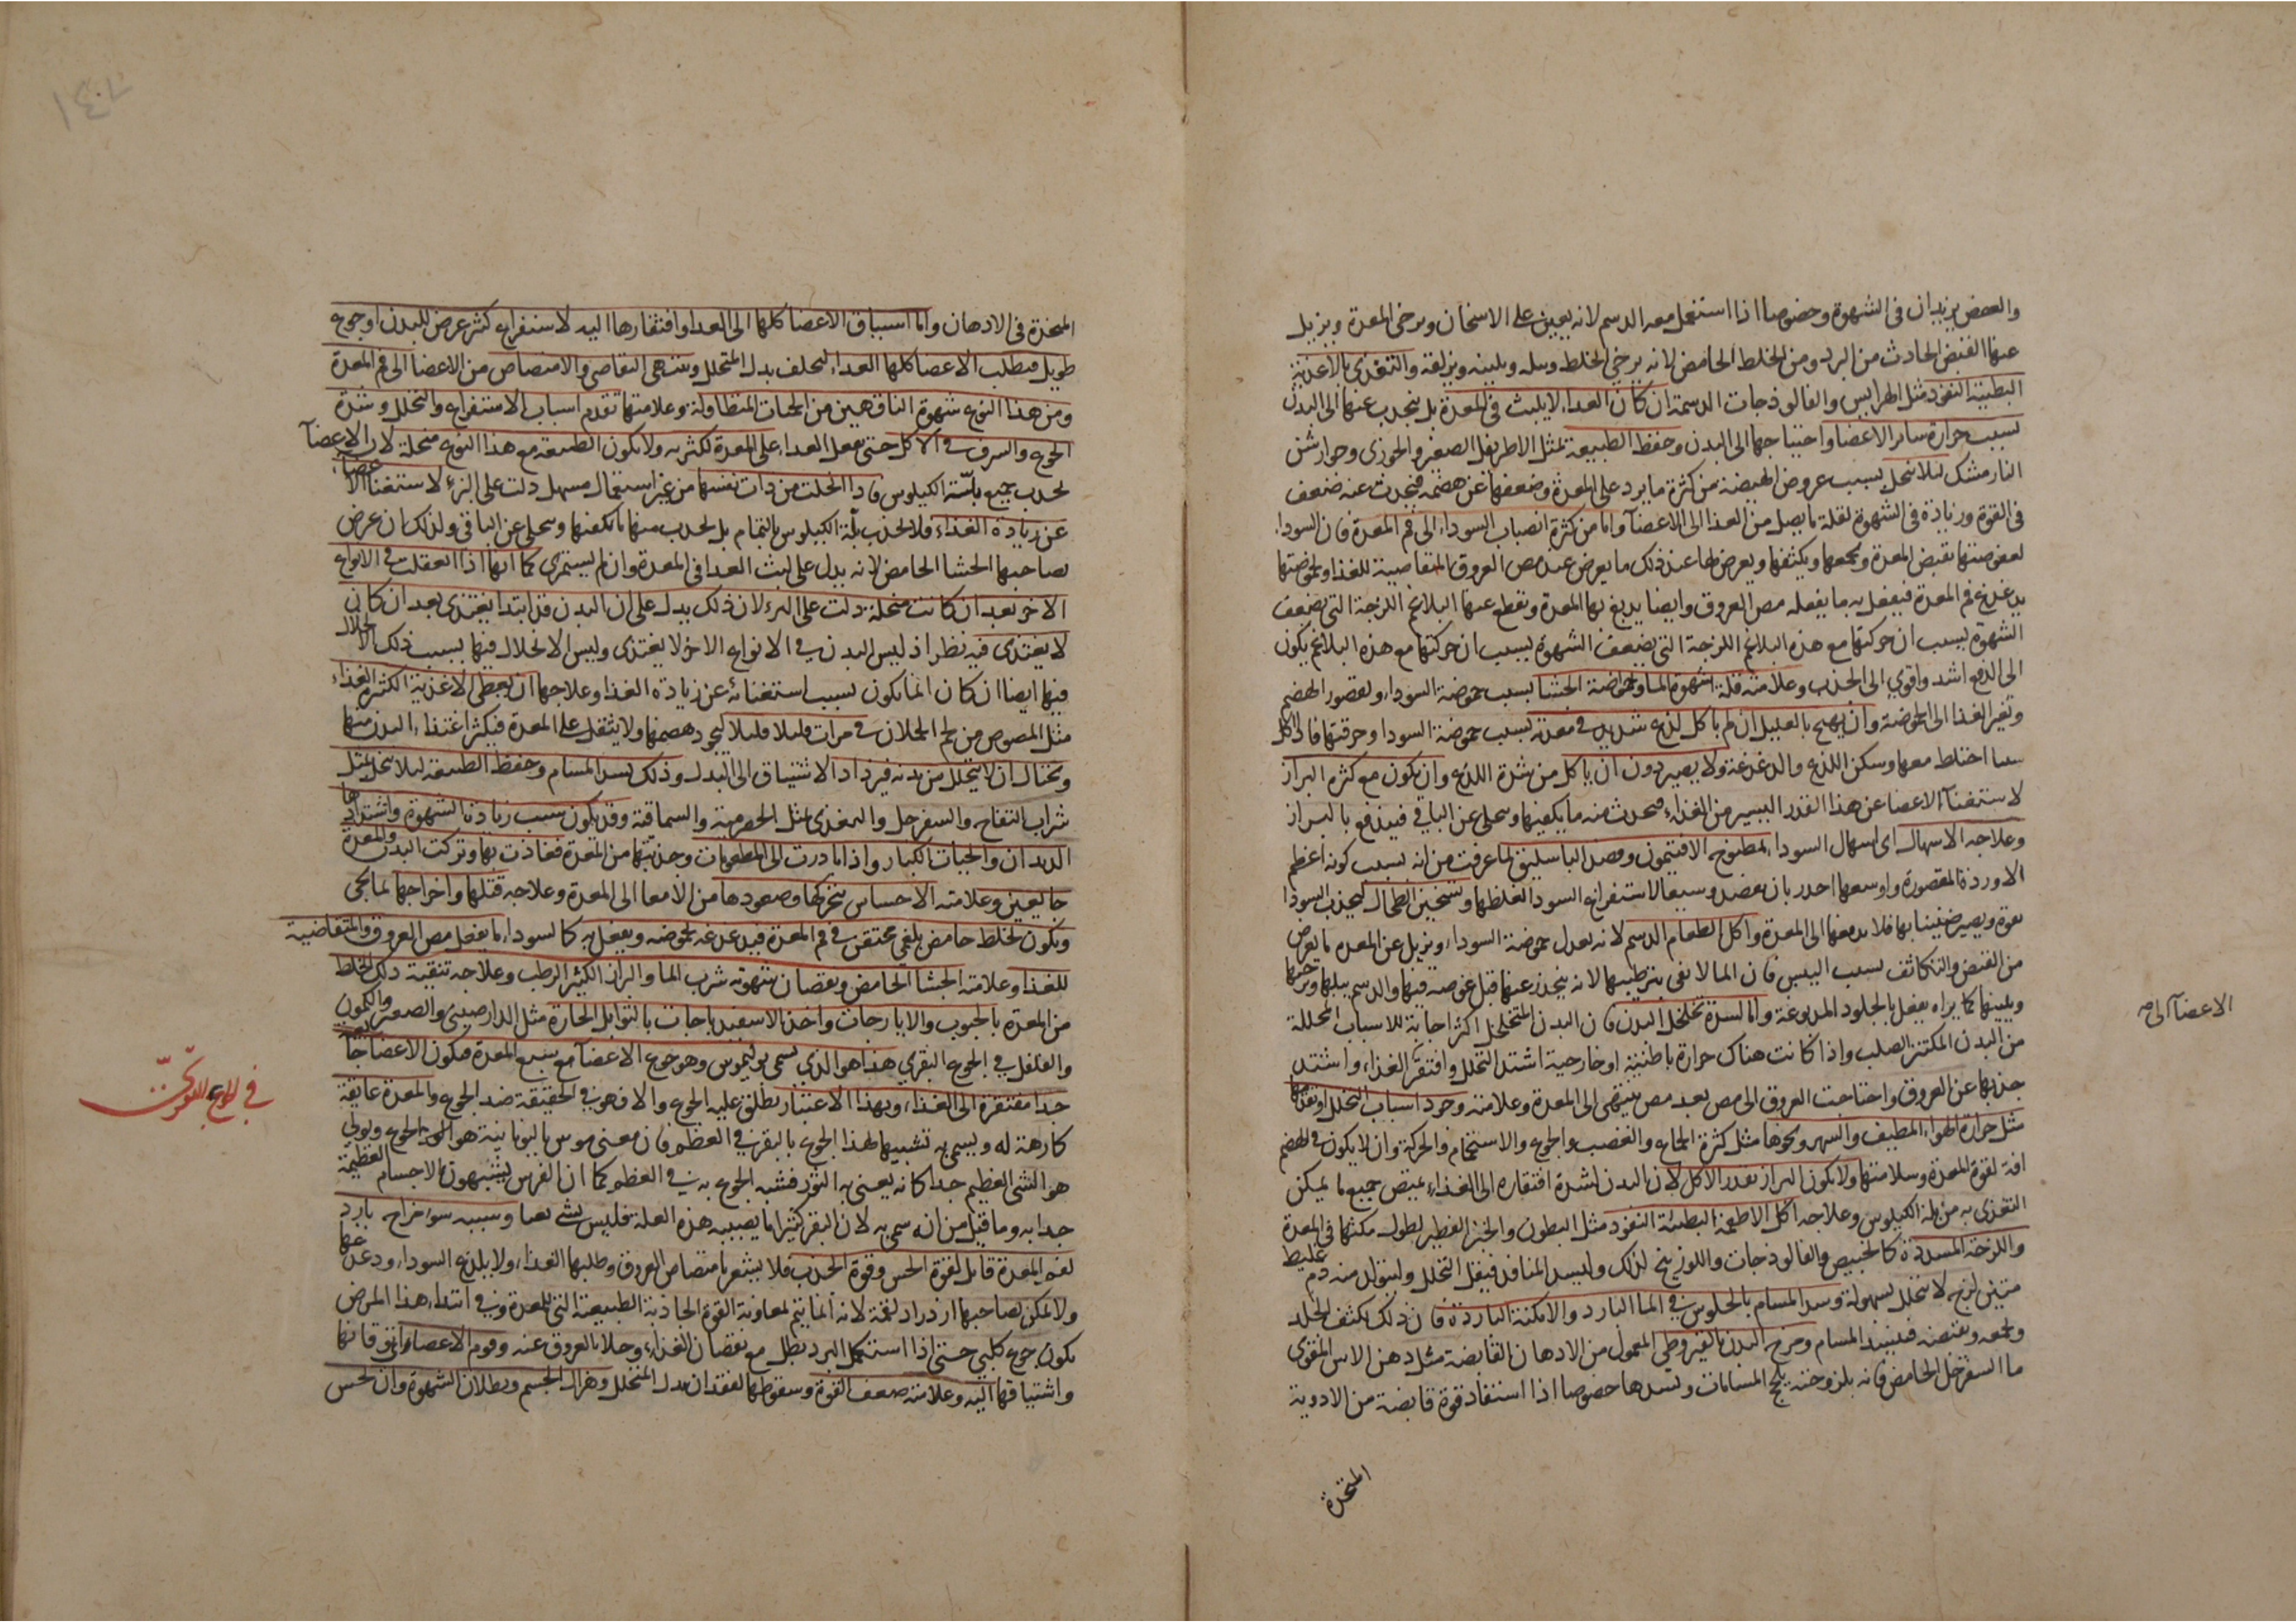 والعفص يزيدان فى الشهوة وخصوصا اذا استعمل معه الدسم لانه يعين على الاسخان ويرخى المعدة ويزيل
عنها القبض الحادث من البرد ومن الخلط الحامض لانه يرخى الخلط ويبله ويلينه ويزلقه والتغذى بالاغذية
البطيئة النفوذ مثل الهرايس والفالوذجات الدسمة ان كان الغداء لا يلبث فى المعدة بل ينجذب عنها الى البدن
بسبب حرارة ساير الاعضا واحتياجها الى البدن وحفظ الطبيعة بمثل الاطريفل الصغير والخوزى وجوارشن
النارمشك ليلا ينحل بسبب عروض الهيضة من كثرة ما يرد على المعدة وضعفها عن هضمه فيحدث عنه ضعف
فى القوة وزيادة فى الشهوة لقلة ما يصل من الغذا الى الاعضآ واما من كثرة انصباب السوداء الى فم المعدة فان السوداء
لعفوصتها تقبض المعدة وتجمعها ويكثفها ويعرض لها عند ذلك ما يعرض عند مص العروق المتقاضية للغذا ولحموضتها
يدغدغ فم المعدة فيفعل به ما يفعله مص العروق وايضا يدبغ بها المعدة وتقطع عنها البلاغم اللزجة التى يضعف
الشهوة بسبب ان حركتها مع هذه البلاغم اللزجة التى يضعف الشهوة بسبب ان حركتها مع هذه البلاغم يكون
الى الدفع اشد واقوى الى الجذب وعلامته قلة شهوة الما وحموضة الجشا بسبب حموضة السوداء ولقصور الهضم
وتغير الغذا الى الحموضة وان يهيج بالعليل ان لم ياكل لذع شديد فى معدته بسبب حموضة السودا وحرقتها فاذا اكل
شيا اختلط معها وسكن اللذع والدغدغة ولا يصبر دون ان ياكل من شدة اللذع وان يكون مع كثرة البراز
لاستغنآ الاعضا عن هذا القدر اليسير من الغذاء فيحدث منه ما يكفيها ويخلى عن الباقى فيندفع بالبراز
وعلاجه الاسهال اى اسهال السوداء بمطبوخ الافتيمون وفصد الباسليق لما عرفت من انه بسبب كونه اعظم
الاوردة المقصودة واوسعها اجدر بان يفصد وسيما لاستفراغ السودا لغلظها وتسخين الطحال ليجذب السودا
بقوة ويصير ضنينا بها فلا يدفعها الى المعدة واكل الطعام الدسم لانه يعدل حموضة السوداء ويزيل عن المعدة ما يعرض
من القبض والتكاثف بسبب اليبس فان الما لا يفى بترطيبها لانه ينحدر عنها قبل غوصه فيها والدسم يبلها ويرخيها
ويلينها كما يراه يفعل بالجلود المدبوغة واما لشدة تخلخل البدن فان البدن المتخلخل اكثر اجابة للاسباب المحللة
من البدن المكتنز الصلب واذا كانت هناك حرارة باطنية او خارجية اشتد التحلل وافتقر الغذاء واشتد
الاعضآ الى
جذبها عن العروق واحتاجت العروق الى مص بعد مص ينتهى الى المعدة وعلامته وجود اسباب التحلل وتقدمها
مثل حرارة الهواء المطيف والسهر ونحوها مثل كثرة الجماع والغضب والجوع والاستحمام والحركة وان لا يكون فى الهضم
افة لقوة المعدة وسلامتها ولا يكون البراز بقدر الاكل لان البدن لشدة افتقاره الى الغذاء يمتص جميع ما يمكن
التغذى به من بلة الكيلوس وعلاجه اكل الاطعمة البطيئة النفوذ مثل البطون والخبز الفطير لطول مكثها فى المعدة
واللزجة المسددة كالخبيص والفالوذجات واللوزينج لذلك وليسد المنافذ فيقل التحلل وليتولد منه دم غليظ
متين لزج لا يتحلل بسهولة وسد المسام بالجلوس فى الما البارد والامكنة الباردة فان ذلك يكثف الجلد
ويجمعه ويقبضه فينسد المسام ومرخ البدن بالقيروطى المعمول من الادهان القابضة مثل دهن الاس المقوى
ما السفرجل الحامض فانه بلزوجته يلج المسامات ويسدها خصوصا اذا استفاد قوة قابضة من الادوية
المتخذة
المخدرة فى الادهان واما اشتياق الاعضا كلها الى الغدا وافتقارها اليه لاستفراغ كثير عرض للبدن او جوع
طويل فيطلب الاعضا كلها الغداء ليخلف بدل المتحلل وينتهى التقاضى والامتصاص من الاعضا الى فم المعدة
ومن هذا النوع شهوة الناقهين من الحميات المتطاولة وعلامتها تقدم اسباب الاستفراغ والتحلل وشدة
الجوع والسرف فى الاكل حتى يثقل الغداء على المعدة لكثرته ولا يكون الطبيعة مع هذا النوع منحلة لان الاعضآ
تجذب جميع بلّة الكيلوس فاذا انحلت من ذات نفسها من غير استعمال مسهل دلت على البرء لاستغنا الاعضاء
عن زيادة الغذاء فلا يجذب بلّة الكيلوس بالتمام بل يجذب منها ما يكفيها ويخلى عن الباقى ولذلك ان عرض
لصاحبها الجشا الحامض لانه يدل على لبث الغدا فى المعدة وان لم يستمرى كما انها اذا انعقلت فى الانواع
الاخر بعد ان كانت منحلة دلت على البرء لان ذلك يدل على ان البدن قد ابتدا يغتذى بعد ان كان
لا يغتذى فيه نظر اذ ليس البدن فى الانواع الاخر لا يغتذى وليس الانحلال فيها بسبب ذلك الانحلال
فيها ايضا ان كان انما يكون بسبب استغنائه عن زيادة الغذا وعلاجها ان يعطى الاغذية الكثيرة الغذاء
مثل المصوص من لحم الحملان فى مرات قليلا قليلا ليجود هضمها ولا يثقل على المعدة فيكثر اغتذاء البدن منها
ويحتال ان لا يتحلل من بدنه فيزداد الاشتياق الى البدل وذلك بسد المسام وحفظ الطبيعة ليلا ينحل بمثل
شراب التفاح والسفرجل والتغذى بمثل الحصرمية والسماقية وقد يكون سبب زيادة الشهوة واشتدادها
الديدان والحيات الكبار واذا بادرت الى المطعومات وجذبتها من المعدة فغاذت بها وتركت البدن والمعدة
جايعين وعلامته الاحساس بتحركها وصعودها من الامعا الى المعدة وعلاجه قتلها واخراجها بما يجى
ويكون لخلط حامض بلغمى محتقن فى فم المعدة فيدغدغه لحموضته ويفعل به كالسوداء ما يفعل مص العروق المتقاضية
للغذا وعلامته الجشا الحامض ونقصان شهوة شرب الما والبراز الكثير الرطب وعلاجه تنقية ذلك الخلط
من المعدة بالحبوب والايارجات واخذ الاسفيدباجات بالتوابل الحارة مثل الدارصينى والصعتر والكمون
والفلفل فى الجوع البقرى هذا هو الذى يسمى بوليموس وهو جوع الاعضآ مع شبع المعدة فيكون الاعضا جايعة
فى الجوع البقرى
جدا مفتقرة الى الغذاء وبهذا الاعتبار يطلق عليه الجوع والا فهو فى الحقيقة ضد الجوع والمعدة عايفة
كارهة له ويسمى به تشبيها لهذا الجوع بالبقر فى العظم فان معنى موس باليونانية هو الجوع وبولى
هو الشى العظيم جدا كانه يعنى به الثور فشبه الجوع به فى العظم كما ان الفرس يشبهون الاجسام العظيمة
جدا به وما قيل من انه سمى به لان البقر كثيرا ما يصيبه هذه العلة فليس بشى يعبا وسببه سوء مزاج بارد
لفم المعدة قابل لقوة الحس وقوة الجذب فلا يشعر بامتصاص العروق وطلبها الغذاء ولا بلذع السوداء ودغدغتها
ولا يمكن لصاحبها ازدراد لقمة لانه انما يتم لمعاونة القوة الجاذبة الطبيعية التى للمعدة وفى ابتداء هذا المرض
يكون جوع كلبى حتى اذا استكمل البرد بطل مع نقصان الغذاء وخلا العروق عنه وقوم الاعضا وتوقانها
واشتياقها اليه وعلامته ضعف القوة وسقوطها لفقدان بدل المتحلل وهزال الجسم وبطلان الشهوة وان لحس